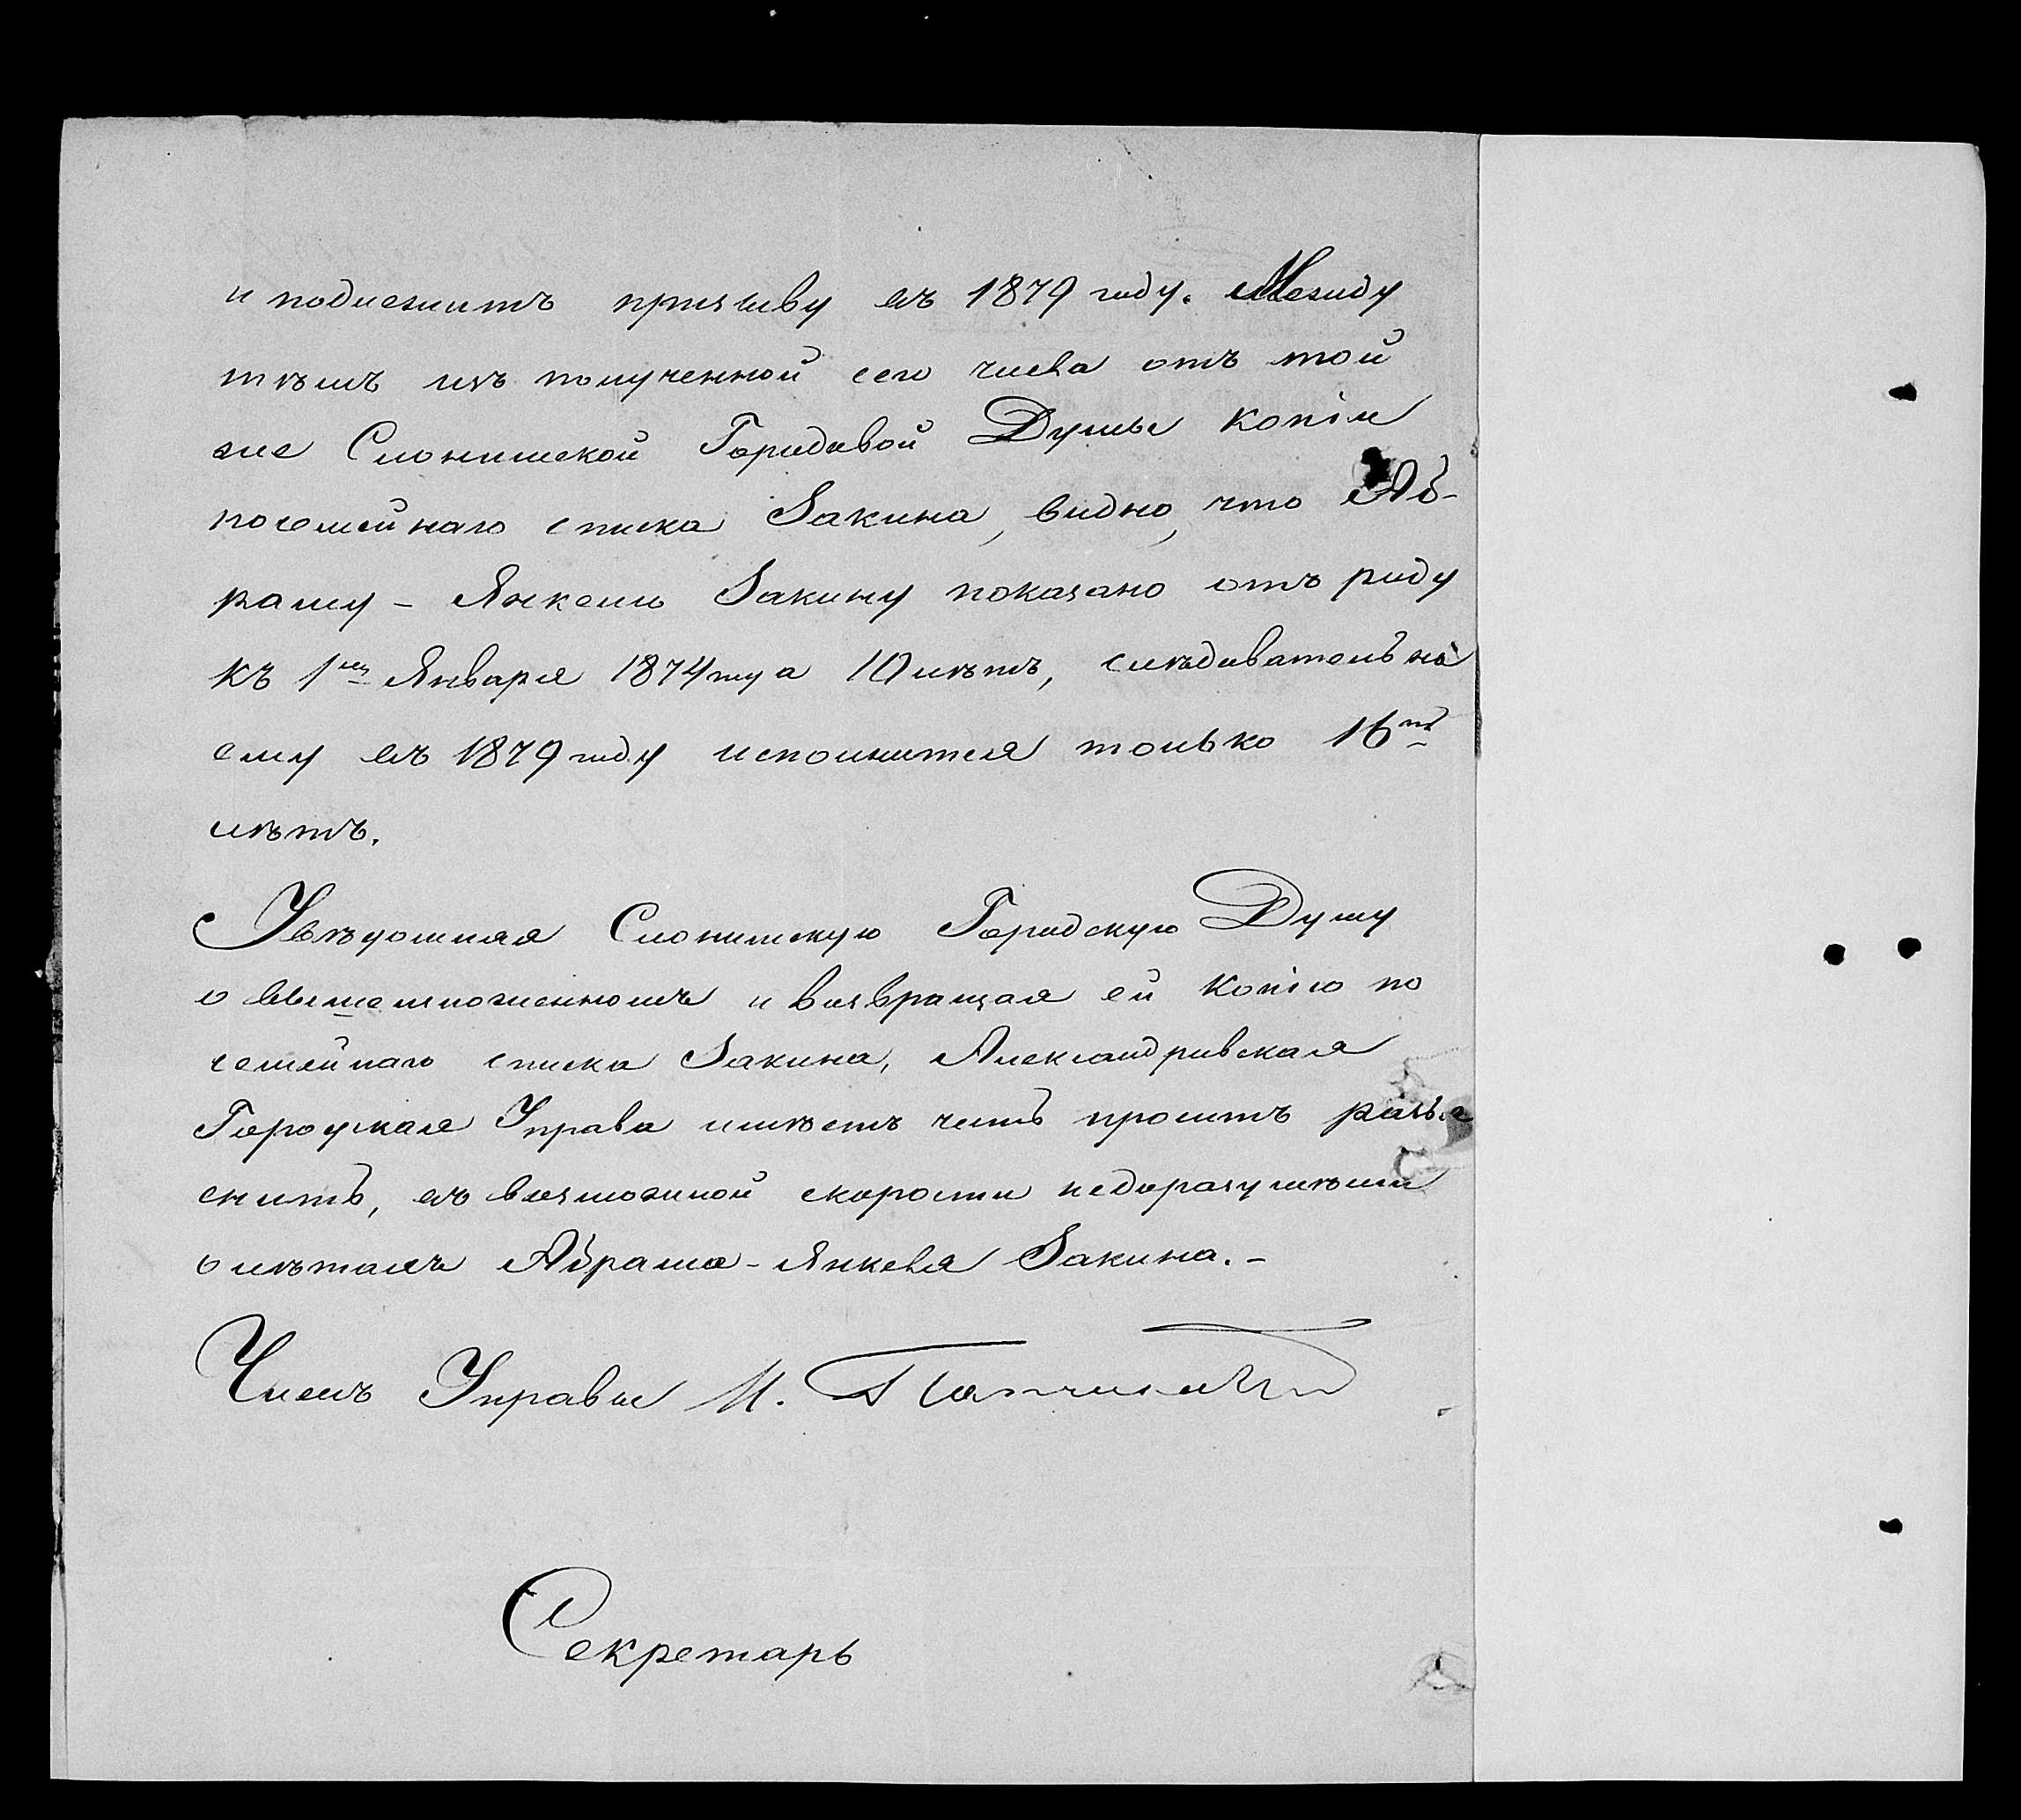 и подлежитъ призыву въ 1879 году. Между
тѣмъ изъ полученной сего числа отъ той
же Слонимской Городовой Думы копіи
посемейнаго списка Закина, видно, что Аб-
раму - Янкелю Закину показано отъ роду
къ 1му Января 1874 года 10 лѣтъ, слѣдовательно
ему въ 1879 году исполнится только 16ть
лѣтъ.
Увѣдомляя Слонимскую Городскую Думу
о вышеизложенномъ и возвращая ей копію по
семейнаго списка Закина, Александровская
Городская Управа имѣетъ честь просить разъя
снить, въ возможной скорости недоразумѣніи
о лѣтахъ Абрама - Янкеля Закина. -
Членъ Управы И.
Секретарь